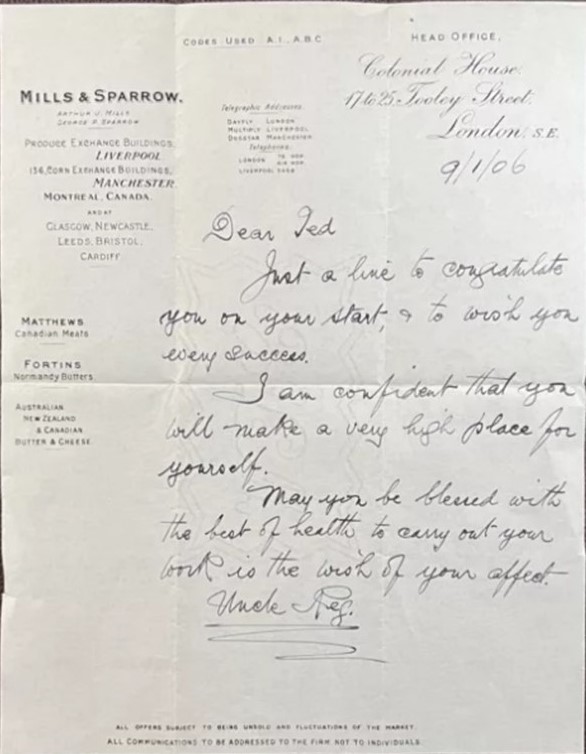 CODES USED A.I., A.B.C
HEAD OFFICE,
Colonial House,
17 to 25 Tooley Street,
London, S.E.
9/1/06
MILLS & SPARROW.
ARTHUR J. MILLS
GEORGE P. SPARROW
PRODUCE EXCHANGE BUILDINGS,
LIVERPOOL
CORN EXCHANGE BUILDINGS,
MANCHESTER
MONTREAL, CANADA.
AND AT
GLASGOW, NEWCASTLE,
LEEDS, BRISTOL,
CARDIFF
Telegraphic Addresses.
LONDON
MULTIPLY LIVERPOOL
MANCHESTER
Telephones.
LONDON
LIVERPOOL
MATTHEWS
Canadian Meats
FORTINS
Normandy Butters
AUSTRALIAN
NEW ZEALAND
& CANADIAN
BUTTER & CHEESE
Dear Ted
Just a line to congratulate
you on your start, & to wish you
every success.
I am confident that you
will make a very high place for
yourself.
May you be blessed with
the best of health to carry out your
work is the wish of your affect.
Uncle Reg.
ALL OFFERS SUBJECT TO BEING UNSOLD AND FLUCTUATIONS OF THE MARKET.
ALL COMMUNICATIONS TO BE ADDRESSED TO THE FIRM NOT TO INDIVIDUALS.